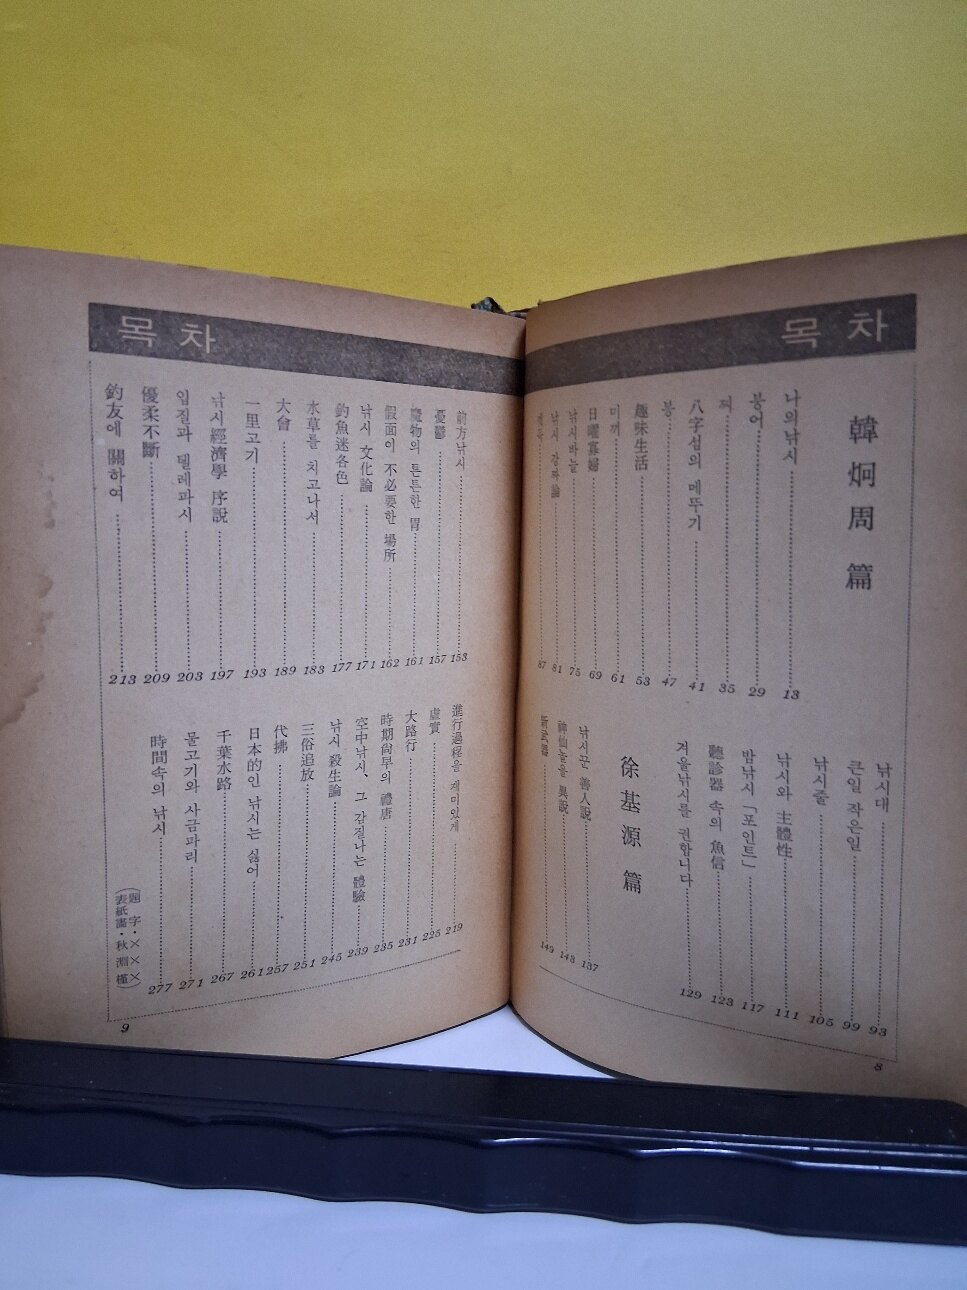 목차
韓炯周篇
나의 낚시 13
붕어 29
찌 35
八字섬의 메뚜기 41
붕 47
趣味生活 53
미끼 61
日曜寡婦 69
낚시바늘 75
낚시 강짜論 81
87
낚시대 93
큰일 작은일 99
낚시줄 105
낚시와 主體性 111
밤낚시 「포인트」 117
聽診器 속의 魚信 123
겨울낚시를 권합니다 129
徐基源篇
낚시꾼 善人說 137
神仙놀음 異說 143
新武器 149
8
목차
前方낚시 153
憂鬱 157
魔物의 튼튼한 胃 161
假面이 不必要한 場所 162
낚시 文化論 171
釣魚迷各色 177
水草를 치고나서 183
大會 189
一里고기 193
낚시經濟學 序說 197
입질과 텔레파시 203
優柔不斷 209
釣友에 關하여 213
進行過程을 재미있게 219
虛實 225
大路行 231
時期尙早의 禮唐 235
空中낚시、그 감질나는 體驗 239
낚시 殺生論 245
三俗追放 251
代拂 257
日本的인 낚시는 싫어 261
千葉水路 267
물고기와 사금파리 271
時間속의 낚시 277
(題字・×××
表紙畵・秋淵槿)
9